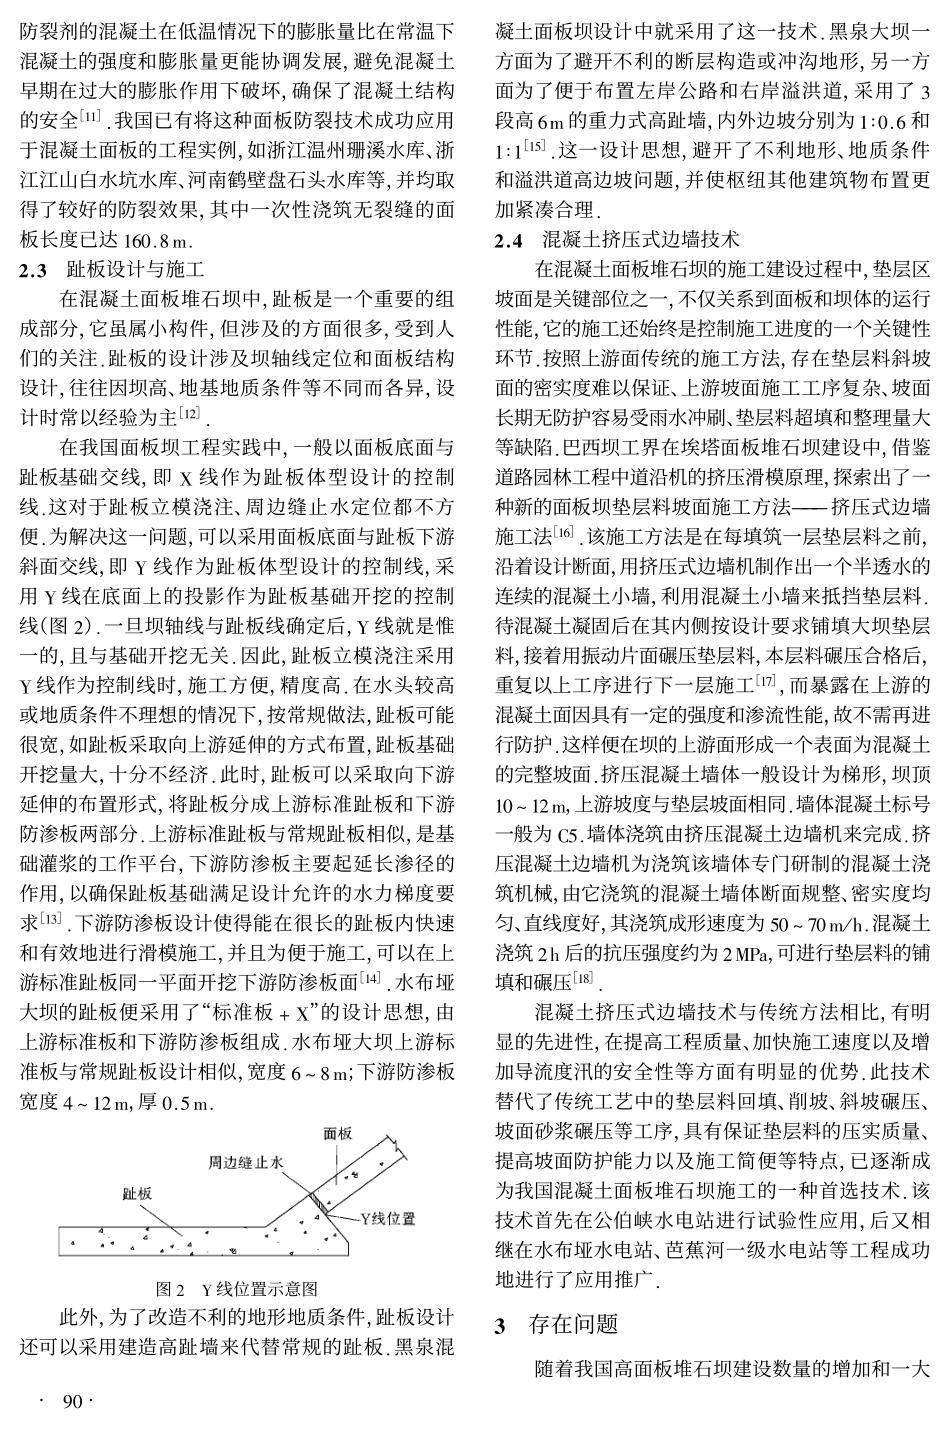 防裂剂的混凝土在低温情况下的膨胀量比在常温下
混凝土的强度和膨胀量更能协调发展,避免混凝土
早期在过大的膨胀作用下破坏,确保了混凝土结构
的安全[11].我国已有将这种面板防裂技术成功应用
于混凝土面板的工程实例,如浙江温州珊溪水库、浙
江江山白水坑水库、河南鹤壁盘石头水库等,并均取
得了较好的防裂效果,其中一次性浇筑无裂缝的面
板长度已达 160.8 m.
2.3 趾板设计与施工
在混凝土面板堆石坝中,趾板是一个重要的组
成部分,它虽属小构件,但涉及的方面很多,受到人
们的关注.趾板的设计涉及坝轴线定位和面板结构
设计,往往因坝高、地基地质条件等不同而各异,设
计时常以经验为主[12].
在我国面板坝工程实践中,一般以面板底面与
趾板基础交线,即 X 线作为趾板体型设计的控制
线.这对于趾板立模浇注、周边缝止水定位都不方
便.为解决这一问题,可以采用面板底面与趾板下游
斜面交线,即 Y 线作为趾板体型设计的控制线,采
用 Y 线在底面上的投影作为趾板基础开挖的控制
线(图 2).一旦坝轴线与趾板线确定后,Y 线就是惟
一的,且与基础开挖无关.因此,趾板立模浇注采用
Y 线作为控制线时,施工方便,精度高.在水头较高
或地质条件不理想的情况下,按常规做法,趾板可能
很宽,如趾板采取向上游延伸的方式布置,趾板基础
开挖量大,十分不经济.此时,趾板可以采取向下游
延伸的布置形式,将趾板分成上游标准趾板和下游
防渗板两部分.上游标准趾板与常规趾板相似,是基
础灌浆的工作平台,下游防渗板主要起延长渗径的
作用,以确保趾板基础满足设计允许的水力梯度要
求[13].下游防渗板设计使得能在很长的趾板内快速
和有效地进行滑模施工,并且为便于施工,可以在上
游标准趾板同一平面开挖下游防渗板面[14].水布垭
大坝的趾板便采用了“标准板 + X”的设计思想,由
上游标准板和下游防渗板组成.水布垭大坝上游标
准板与常规趾板设计相似,宽度 6 ~ 8 m;下游防渗板
宽度 4 ~ 12 m,厚 0.5 m.
面板
周边缝止水
趾板
Y线位置
图 2 Y 线位置示意图
此外,为了改造不利的地形地质条件,趾板设计
还可以采用建造高趾墙来代替常规的趾板.黑泉混
· 90 ·
凝土面板坝设计中就采用了这一技术.黑泉大坝一
方面为了避开不利的断层构造或冲沟地形,另一方
面为了便于布置左岸公路和右岸溢洪道,采用了 3
段高 6 m 的重力式高趾墙,内外边坡分别为 1:0.6 和
1:1[15].这一设计思想,避开了不利地形、地质条件
和溢洪道高边坡问题,并使枢纽其他建筑物布置更
加紧凑合理.
2.4 混凝土挤压式边墙技术
在混凝土面板堆石坝的施工建设过程中,垫层区
坡面是关键部位之一,不仅关系到面板和坝体的运行
性能,它的施工还始终是控制施工进度的一个关键性
环节.按照上游面传统的施工方法,存在垫层料斜坡
面的密实度难以保证、上游坡面施工工序复杂、坡面
长期无防护容易受雨水冲刷、垫层料超填和整理量大
等缺陷.巴西坝工界在埃塔面板堆石坝建设中,借鉴
道路园林工程中道沿机的挤压滑模原理,探索出了一
种新的面板坝垫层料坡面施工方法——挤压式边墙
施工法[16].该施工方法是在每填筑一层垫层料之前,
沿着设计断面,用挤压式边墙机制作出一个半透水的
连续的混凝土小墙,利用混凝土小墙来抵挡垫层料.
待混凝土凝固后在其内侧按设计要求铺填大坝垫层
料,接着用振动片面碾压垫层料,本层料碾压合格后,
重复以上工序进行下一层施工[17],而暴露在上游的
混凝土面因具有一定的强度和渗流性能,故不需再进
行防护.这样便在坝的上游面形成一个表面为混凝土
的完整坡面.挤压混凝土墙体一般设计为梯形,坝顶
10 ~ 12 m,上游坡度与垫层坡面相同.墙体混凝土标号
一般为 C5.墙体浇筑由挤压混凝土边墙机来完成.挤
压混凝土边墙机为浇筑该墙体专门研制的混凝土浇
筑机械,由它浇筑的混凝土墙体断面规整、密实度均
匀、直线度好,其浇筑成形速度为 50 ~ 70 m/h.混凝土
浇筑 2 h 后的抗压强度约为 2 MPa,可进行垫层料的铺
填和碾压[18].
混凝土挤压式边墙技术与传统方法相比,有明
显的先进性,在提高工程质量、加快施工速度以及增
加导流度汛的安全性等方面有明显的优势.此技术
替代了传统工艺中的垫层料回填、削坡、斜坡碾压、
坡面砂浆碾压等工序,具有保证垫层料的压实质量、
提高坡面防护能力以及施工简便等特点,已逐渐成
为我国混凝土面板堆石坝施工的一种首选技术.该
技术首先在公伯峡水电站进行试验性应用,后又相
继在水布垭水电站、芭蕉河一级水电站等工程成功
地进行了应用推广.
3 存在问题
随着我国高面板堆石坝建设数量的增加和一大